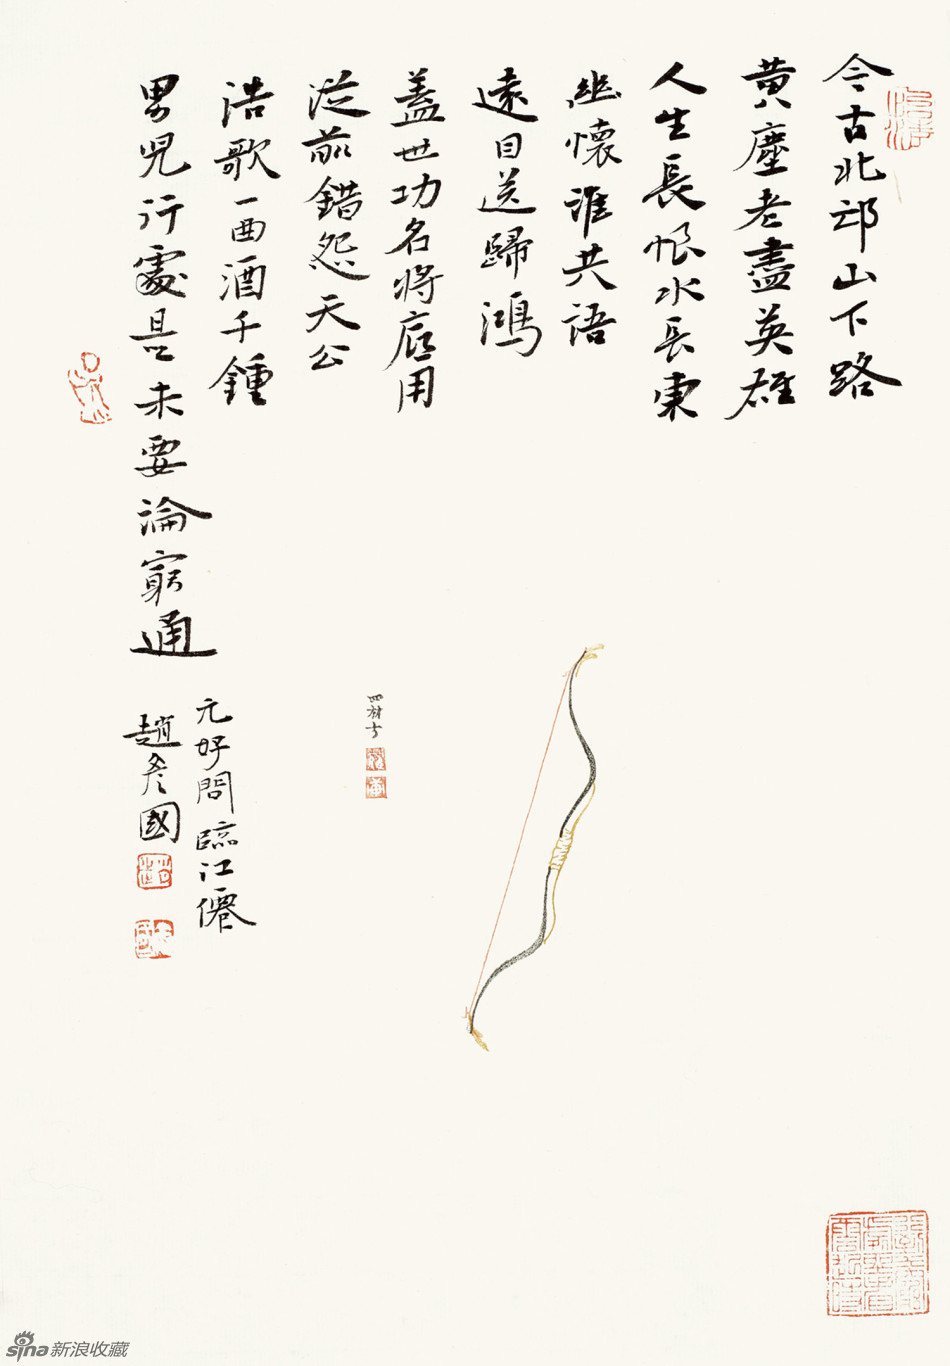 今古北邙山下路
黄塵老盡英雄
人生長恨水長東
幽懷誰共語
遠目送歸鴻
蓋世功名將底用
從前錯怨天公
浩歌一曲酒千鍾
男兒行處是未要論窮通
元好問臨江僊
趙彥國
sina新浪收藏